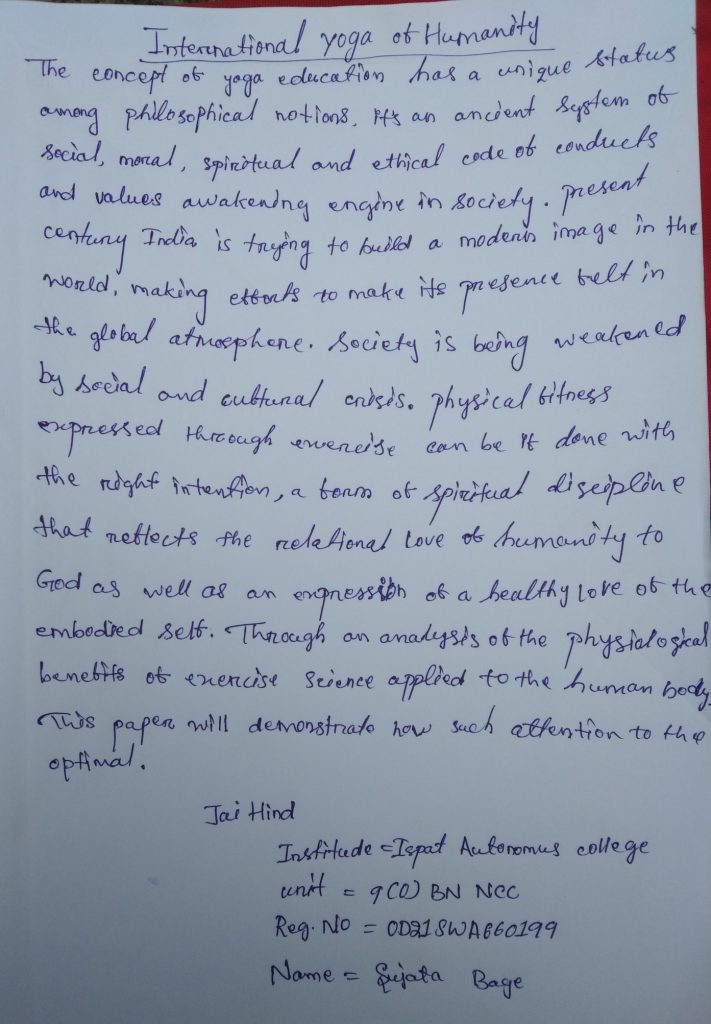 International yoga of Humanity
The concept of yoga education has a unique status
among philosophical notions. It's an ancient system of
social, moral, spiritual and ethical code of conducts
and values awakening engine in society. present
century India is trying to build a modern image in the
world, making efforts to make its presence felt in
the global atmosphere. Society is being weakened
by social and cultural crisis. physical fitness
expressed through exercise can be if done with
the right intention, a form of spiritual discipline
that reflects the relational love of humanity to
God as well as an expression of a healthy love of the
embodied self. Through an analysis of the physiological
benefits of exercise science applied to the human body.
This paper will demonstrate how such attention to the
optimal.
Jai Hind
Institude = Ispat Autonomus college
unit = 9(O) BN NCC
Reg. No = OD21SWA660199
Name = Sujata Bage